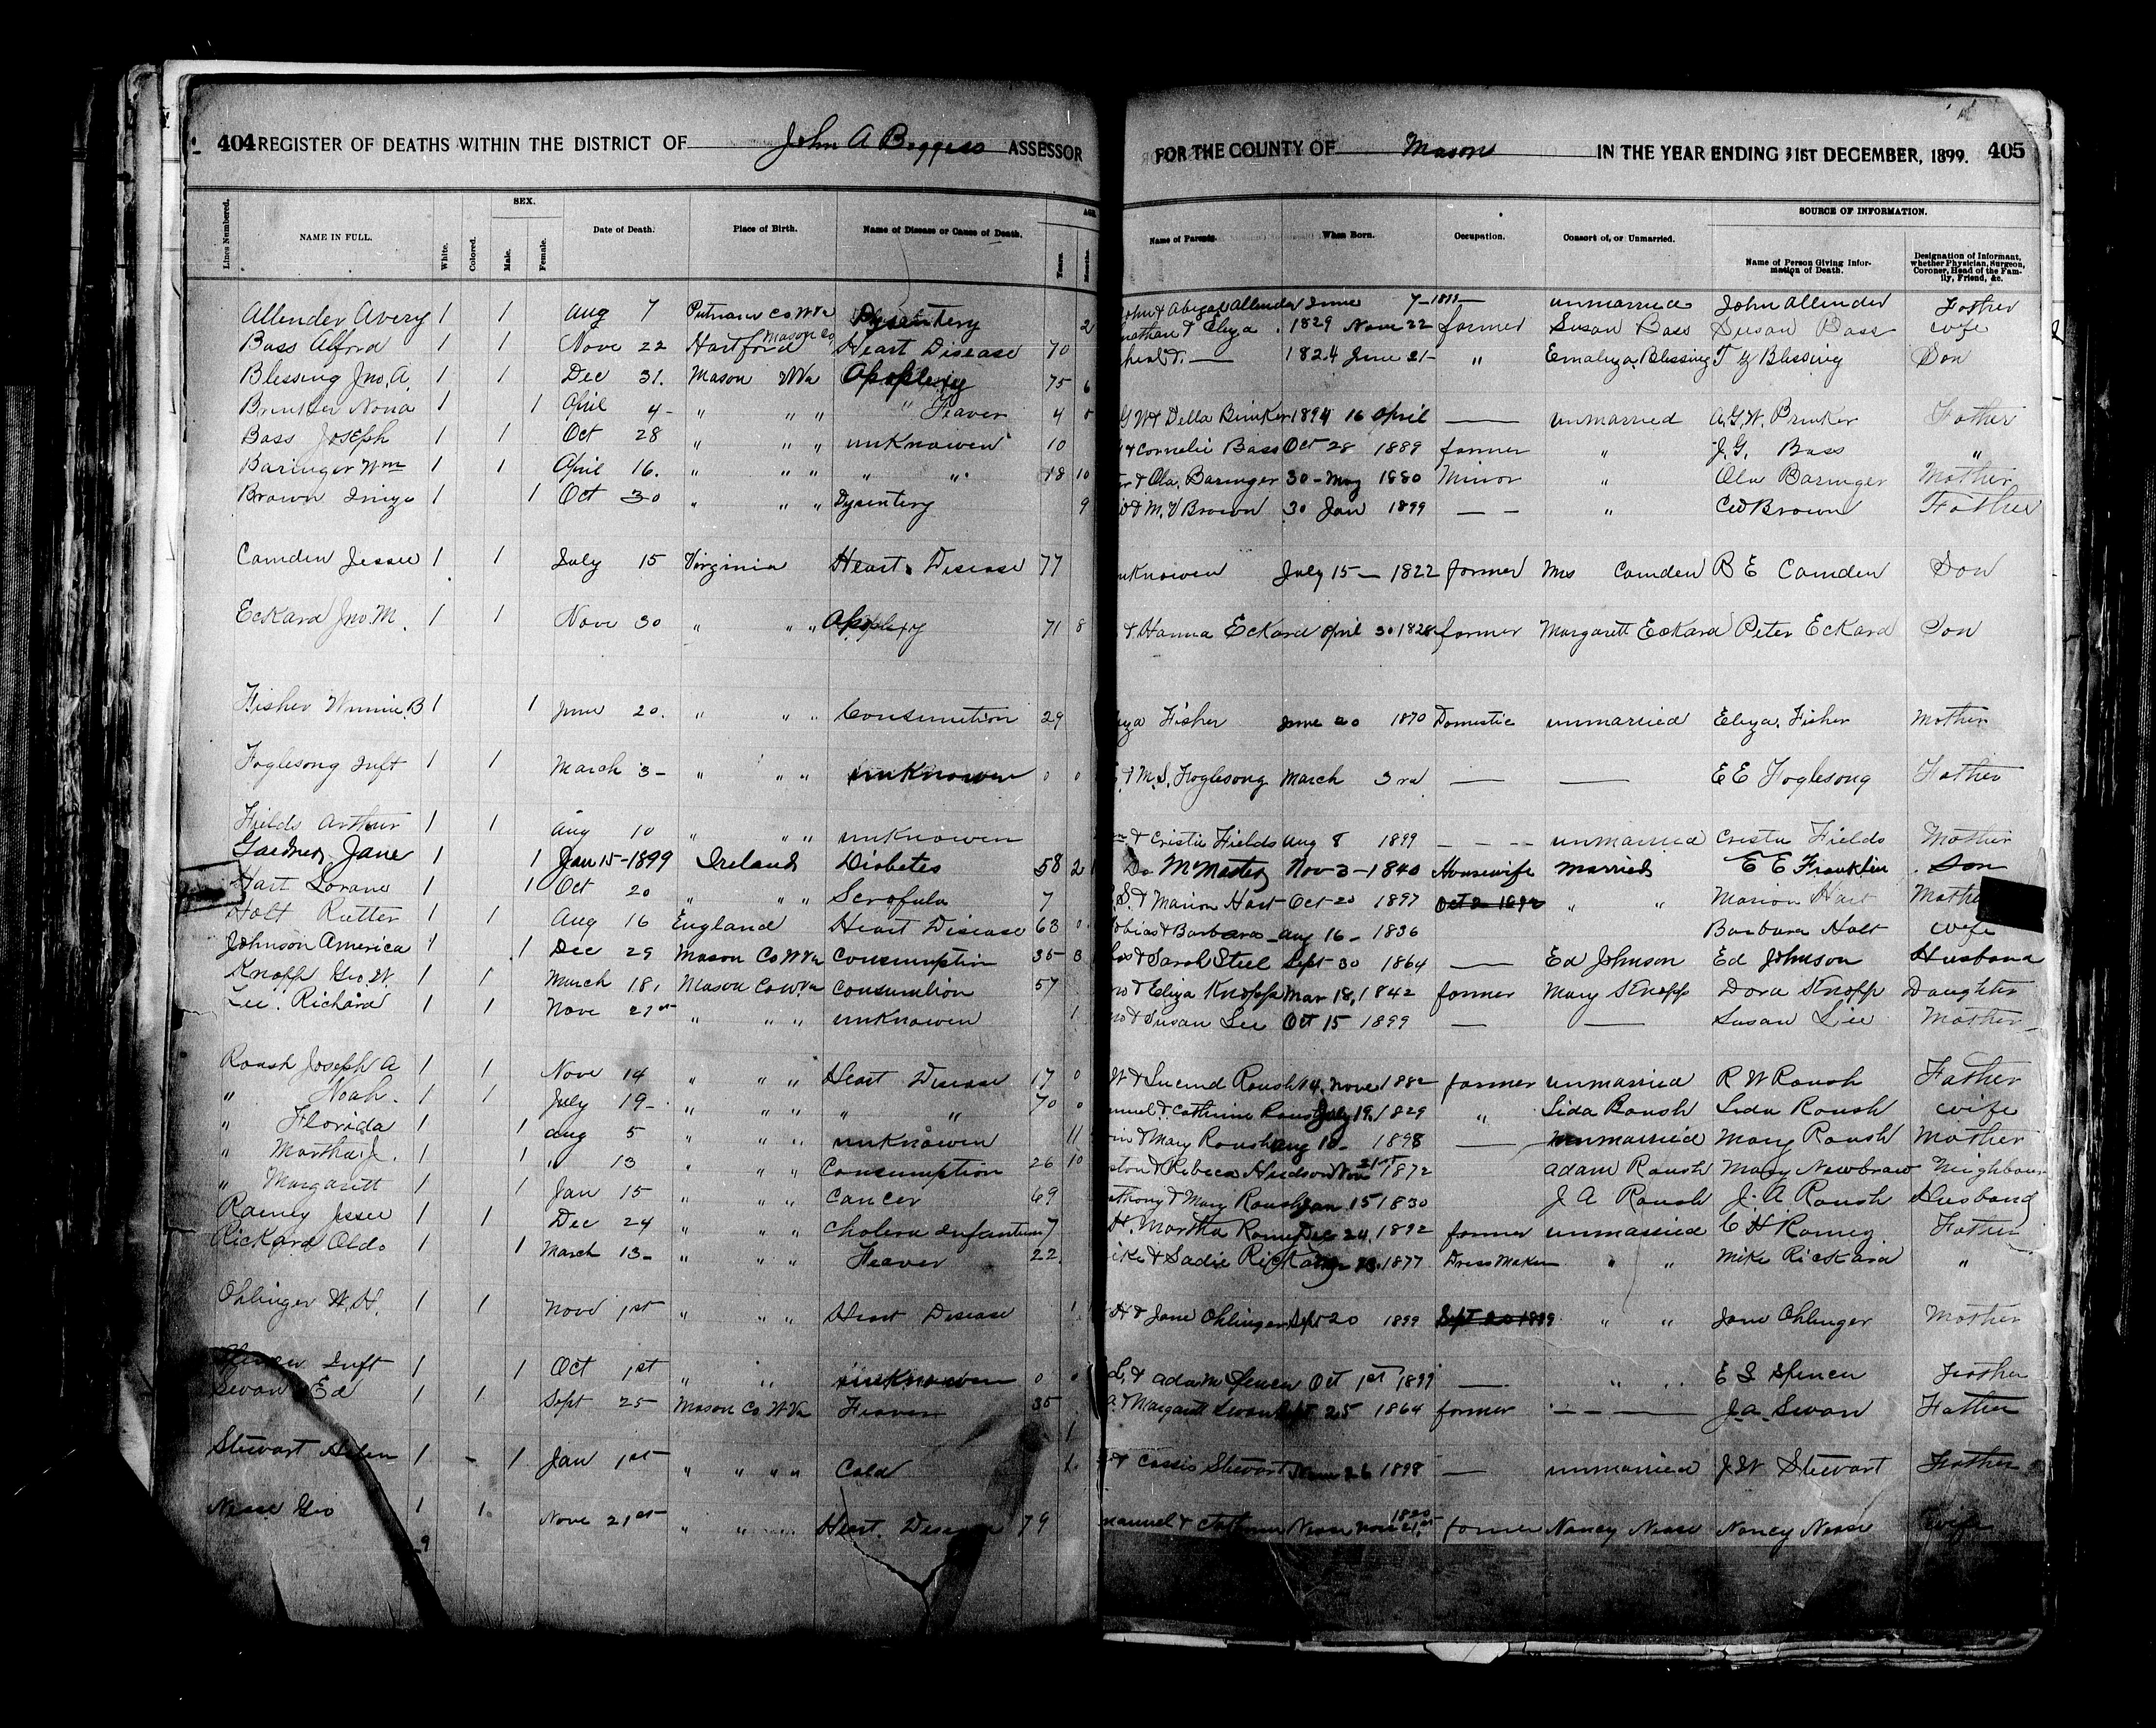 404 REGISTER OF DEATHS WITHIN THE DISTRICT OF John A Boggess ASSESSOR FOR THE COUNTY OF Mason IN THE YEAR ENDING 31ST DECEMBER, 1899. 405
Lines Numbered. NAME IN FULL. White. Colored. SEX. Male. Female. Date of Death. Place of Birth. Name of Disease or Cause of Death. AGE Years. Months. Name of Parents. When Born. Occupation. Consort of, or Unmarried. SOURCE OF INFORMATION. Name of Person Giving Information of Death. Designation of Informant, whether Physician, Surgeon, Coroner, Head of the Family, Friend, &c.
Allender Avery 1 1 Aug 7 Putnam Co W Va Dysentery 2 John & Abigal Allender June 7- 1899 unmarried John Allender Father
Bass Alford 1 1 Nove 22 Hartford Mason Co Heart Disease 70 & Eliza 1829 Nove 22 farmer Susan Bass Susan Bass wife
Blessing Jno. A. 1 1 Dec 31. Mason W Va Apoplexy 75 6 1824 June 21- " Emaliza Blessing T Y Blessing Son
Brinker Nona 1 1 April 4- " " " " Feaver 4 G W & Della Brinker 1894 16 April — unmarried G. W. Brinker Father
Bass Joseph 1 1 Oct 28 " " " unknowen 10 & Cornelie Bass Oct 28 1889 farmer " J. G. Bass "
Baringer Wm 1 1 April 16. " " " " " 18 10 & Ola Baringer 30 - May 1880 Minor " Ola Baringer Mother
Brown Inize 1 1 Oct 30 " " " Dysentery 9 & M. V Brown 30 Jan 1899 — — " C W Brown Father
Camden Jessee 1 1 July 15 Virginia Heart Disease 77 unknowen July 15 — 1822 farmer Mrs Camden B E Camden Son
Eckard Jno. M. 1 1 Nove 30 " " " Apoplexy 71 8 & Hanna Eckard April 30 1828 farmer Margarett Eckard Peter Eckard Son
Fisher Winnie. B 1 1 June 20. " " " Consumtion 29 Fisher June 20 1870 Domestic unmarried Eliza Fisher Mother
Foglesong Inft 1 1 March 3- " " " unknowen 0 0 & M. S. Foglesong March 3rd — — E E Foglesong Father
Fields Arthur 1 1 Aug 10 " " " unknowen & Cristie Fields Aug 8 1899 - - - unmarried Crista Fields Mother
Gardner Jane 1 1 Jan 15-1899 Ireland Diabetes 58 2 Do McMaster Nov-3-1840 Housewife married E E Franklin Son
Hart Lorane 1 1 Oct 20 " " " Scrofula 7 S. & Marion Hart Oct-20 1897 " " Marion Hart
Holt Rutter 1 1 Aug 16 England Heart Disease 63 0 & Barbara - Aug 16 - 1836 Barbara Holt wife
Johnson America 1 1 Dec 29 Mason Co W Va Consumption 35 3 & Sarah Steel Sept 30 1864 — Ed Johnson Ed Johnson Husband
Knopp Geo. W. 1 1 March 18, Mason Co W. Va Consumtion 57 & Eliza Knopp Mar 18, 1842 farmer Mary Knopp Dora Knopp Daughter
Lee. Richard 1 1 Nove 21st " " " unknowen 1 & Susan Lee Oct 15 1899 — — Susan Lee Mother
Roush Joseph A 1 1 Nove 14 " " " Heart Disease 17 0 W & Lucind Roush 14, Nove 1882 farmer unmarried R W Roush Father
" Noah. 1 1 July 19- " " " " " 70 0 & Cathrine Roush July 19, 1829 " Lida Roush Lida Roush wife
" Florida 1 1 Aug 5 " " " unknowen 11 & Mary Roush Aug 10- 1898 — unmarried Mary Roush Mother
" Martha J. 1 1 " 13 " " " Consumption 26 10 & Rebeca Hudson Nove 21st 1872 Adam Roush Mary Newbraw Neighbour
" Margarett 1 1 Jan 15 " " " Cancer 69 & Mary Roush Jan 15 1830 J A Roush J. A Roush Husband
Ramey Jesee 1 1 Dec 24 " " " Cholera Infantum 7 H. Martha Ramey Dec 24, 1892 farmer unmarried C H Ramey Father
Rickard Oldo 1 1 March 13- " " " Feaver 22. & Sadie Rickard 13. 1877 Dress Maker " " Mike Rickard "
Ohlinger W. H. 1 1 Nove 1st " " " Heart Disease 1 H & Jane Ohlinger Sept 20 1899 Sept 20 1899 " " Jane Ohlinger Mother
Inft 1 1 Oct 1st " " unknowen 0 & Adam Spencer Oct 1st 1899 — " " E S Spencer Father
Swan Ed 1 1 Sept 25 Mason Co W Va Feaver 35 & Margarett Swan Sept 25 1864 farmer — J. A. Swan Father
Stewart Helen 1 - 1 Jan 1st " " " " Cold 1 & Cassis Stewart 26 1898 — unmarried J W Stewart Father
Nease Geo 1 1 Nove 21st " " " Heart Disease 79 & Nease Nove 21st 1820 farmer Nancy Nease Nancy Nease wife